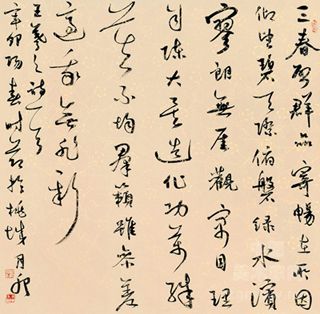 三春啟群品寄暢在所因
仰望碧天際俯磐綠水濱
寥朗無厓觀寓目理
自陳大矣造化功萬殊
莫不均羣籟雖參差
適我無非新
王羲之詩一首
辛卯陽春時節於桃城